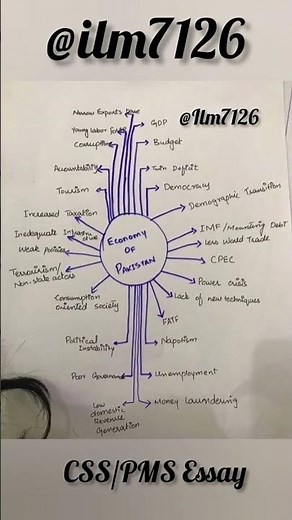 @ilm7126
Narrow Exports Base
Young Labor Force
Corruption
Accountability
Tourism
Increased Taxation
Inadequate Infrastructure
Weak Policies
Terrorism/
Non-state actors
Consumption
oriented society
Political
Instability
Poor Governance
Low
domestic
Revenue
Generation
Economy
OF
Pakistan
@Ilm7126
GDP
Budget
Twin Deficit
Democracy
Demographic Transition
IMF/Mounting Debt
Less World Trade
CPEC
Power crisis
Lack of new techniques
FATF
Napotism
Unemployment
Money Laundering
CSS/PMS Essay